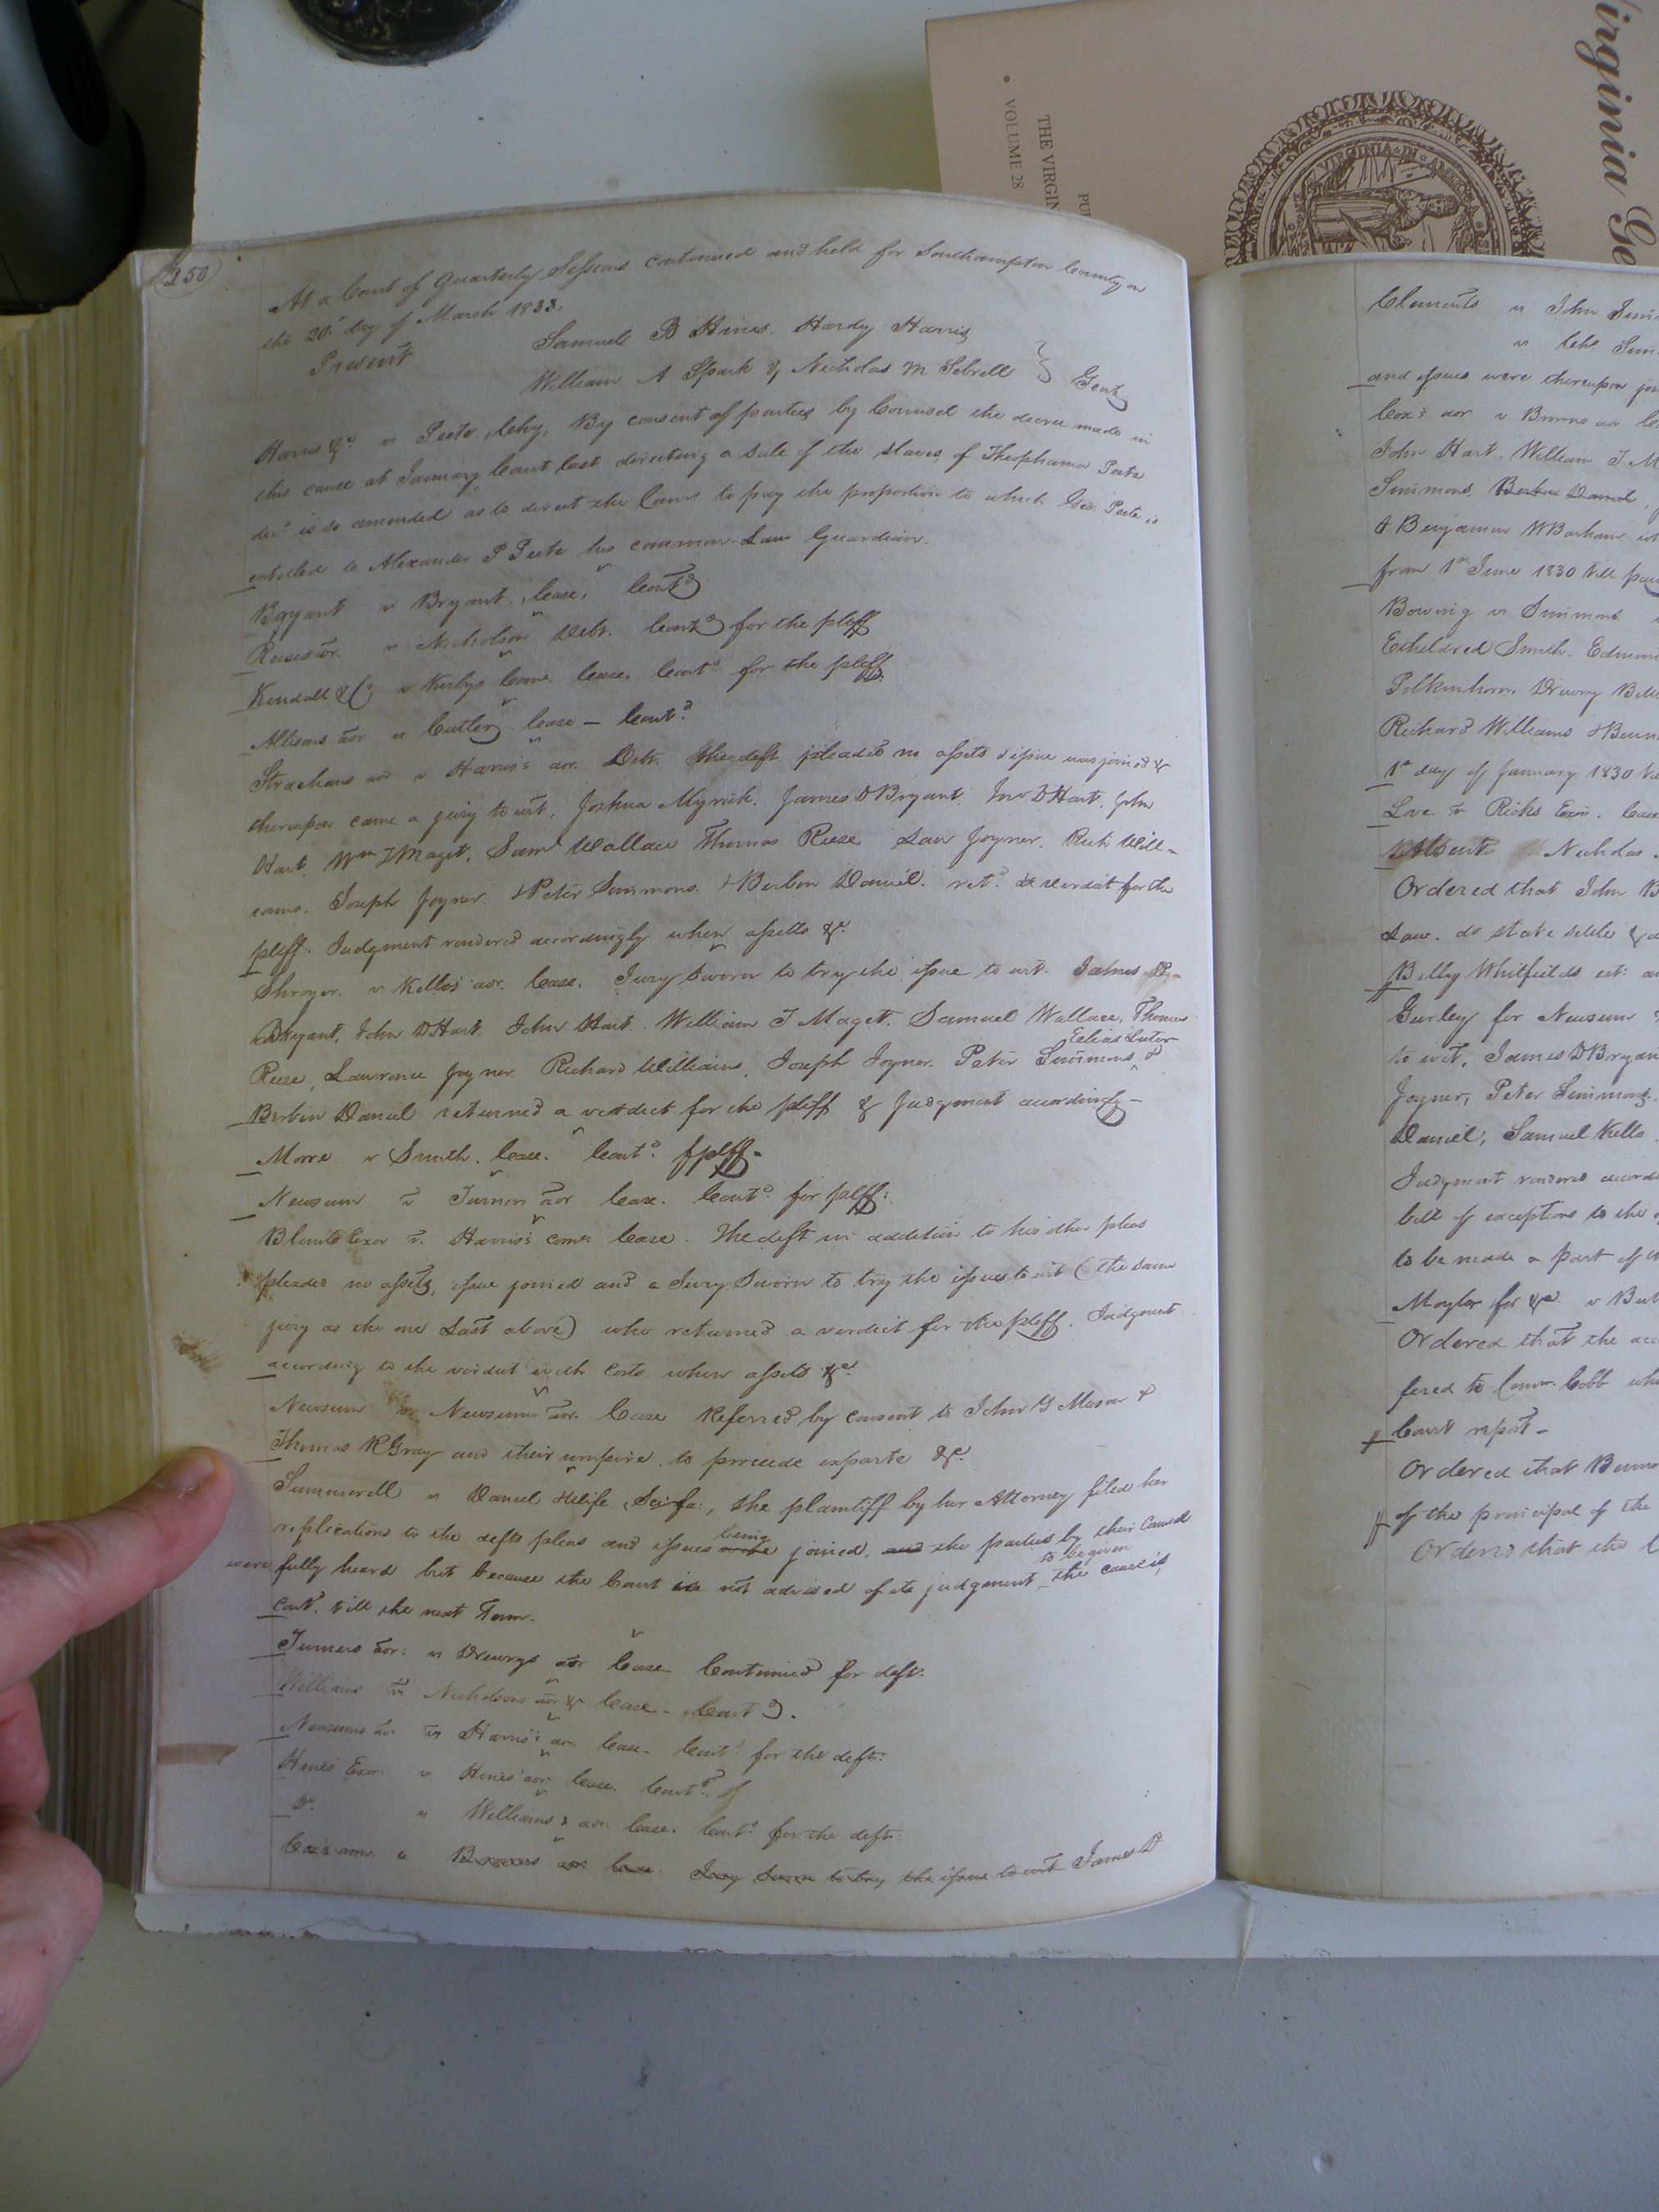 Virginia Ge
THE VIRGIN
PU
• VOLUME 28
VIRGINIA IN AME
250
At a Court of Quarterly Sessions continued and held for Southampton County on
the 20th day of March 1833.
Present Samuel B Hines, Hardy Harris
William A Spark & Nicholas M Sebrell Gent
Harris &c vs Peete, Chy, By consent of parties by Counsel the decree made in
this cause at January Court last directing a sale of the slaves of Theophania Peete
decd is so amended as to direct the Comrs to pay the proportion to which Geo: Peete is
entitled to Alexander P Peete his common Law Guardian.
Bryant v Bryant. Case, Contd
Reeses aor. v Nicholson Debt. Contd for the pltff
Kendall & Co v Kirbys Case. Contd for the pltff
Allisons aor v Cutler, Case – Contd
Strachans aor v Harris's aor. Debt. the deft. pleaded no assets issue was joined &
thereupon came a jury to wit, Joshua Myrick, James D Bryant, Jno D Hart, John
Hart, Wm J Maget, Saml Wallace Thomas Reese Law Joyner. Rich Will-
iams. Joseph Joyner & Peter Simmons. & Berbin Daniel. retd verdict for the
pltff. Judgment rendered accordingly when assetts &c.
Shroyer. v Kello's aor. Case. Jury sworn to try the issue to wit. James D
Bryant, John D Hart. John Hart. William J Maget. Samuel Wallace, Thomas
Elias Luter
Reese, Lawrence Joyner. Richard Williams, Joseph Joyner. Peter Simmons, &
Berbin Daniel returned a verdict for the pltff & Judgment accordingly –
Moore v Smith. Case. Contd. f pltff –
Newsum v Turners aor Case. Contd for pltff:
Blunts Exor v. Harris's Case. The deft in addition to his other pleas
pleaded no assets, issue joined and a Jury Sworn to try the issues to wit (the same
jury as the one Last above) who returned a verdict for the pltff. Judgment
according to the verdict with Costs when assets &c.
Newsum v Newsums aor. Case Referred by consent to John Y Mason &
Thomas R Gray and their umpire, to proceed exparte &c.
Summerell v Daniel & Wife, Sci fa:, the plaintiff by her Attorney filed her
being
replication to the defts pleas and issues were joined, and the parties by their Counsel
to be given
were fully heard but because the Court is not advised of its judgment the cause is
cont. till the next Term.
Turners aor: v Drewrys aor Case Continued for deft.
Williams vs Nicholsons aor & Case – Contd.
Newsums aor. vs Harris's aor Case – Contd for the deft:
Hines Exor v Hines' aor Case. Contd. f
Do v Williams's aor. Case. Contd for the deft:
Cox's aor v Browns aor: Case: Jury Sworn to try the issue to wit James D
Clements v John
v
and issues were thereupon
Cox's aor v Browns aor
John Hart. William J M
Simmons, Berbin Daniel
& Benjamin W Barham
from 1st June 1830 till
Bowing v Simmons
Etheldred Smith. Edmun
Drewry
Richard Williams &
1st day of January 1830
Love v Ricks Exor. Case
Nicholas
Ordered that John B
Law. do state settle &
Billy Whitfields est:
Gurley for Newsum
to wit, James D Bryan
Joyner, Peter Simmons
Daniel, Samuel Kello
Judgment rendered accord
bill of exceptions to the
to be made a part of
Moyler for &c. v
Ordered that the
fered to Comr. Cobb
Court report –
Ordered that
of the principal of the
Ordered that the